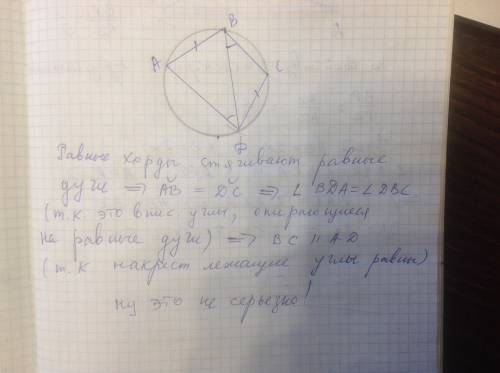 B
A
C
D
Равные хорды стягивают равные
дуги => AB = DC => ∠ BDA = ∠ DBC
(т.к. это впис. углы, опирающиеся
на равные дуги) => BC || AD
(т.к накрест лежащие углы равны)
ну это не серьезно!